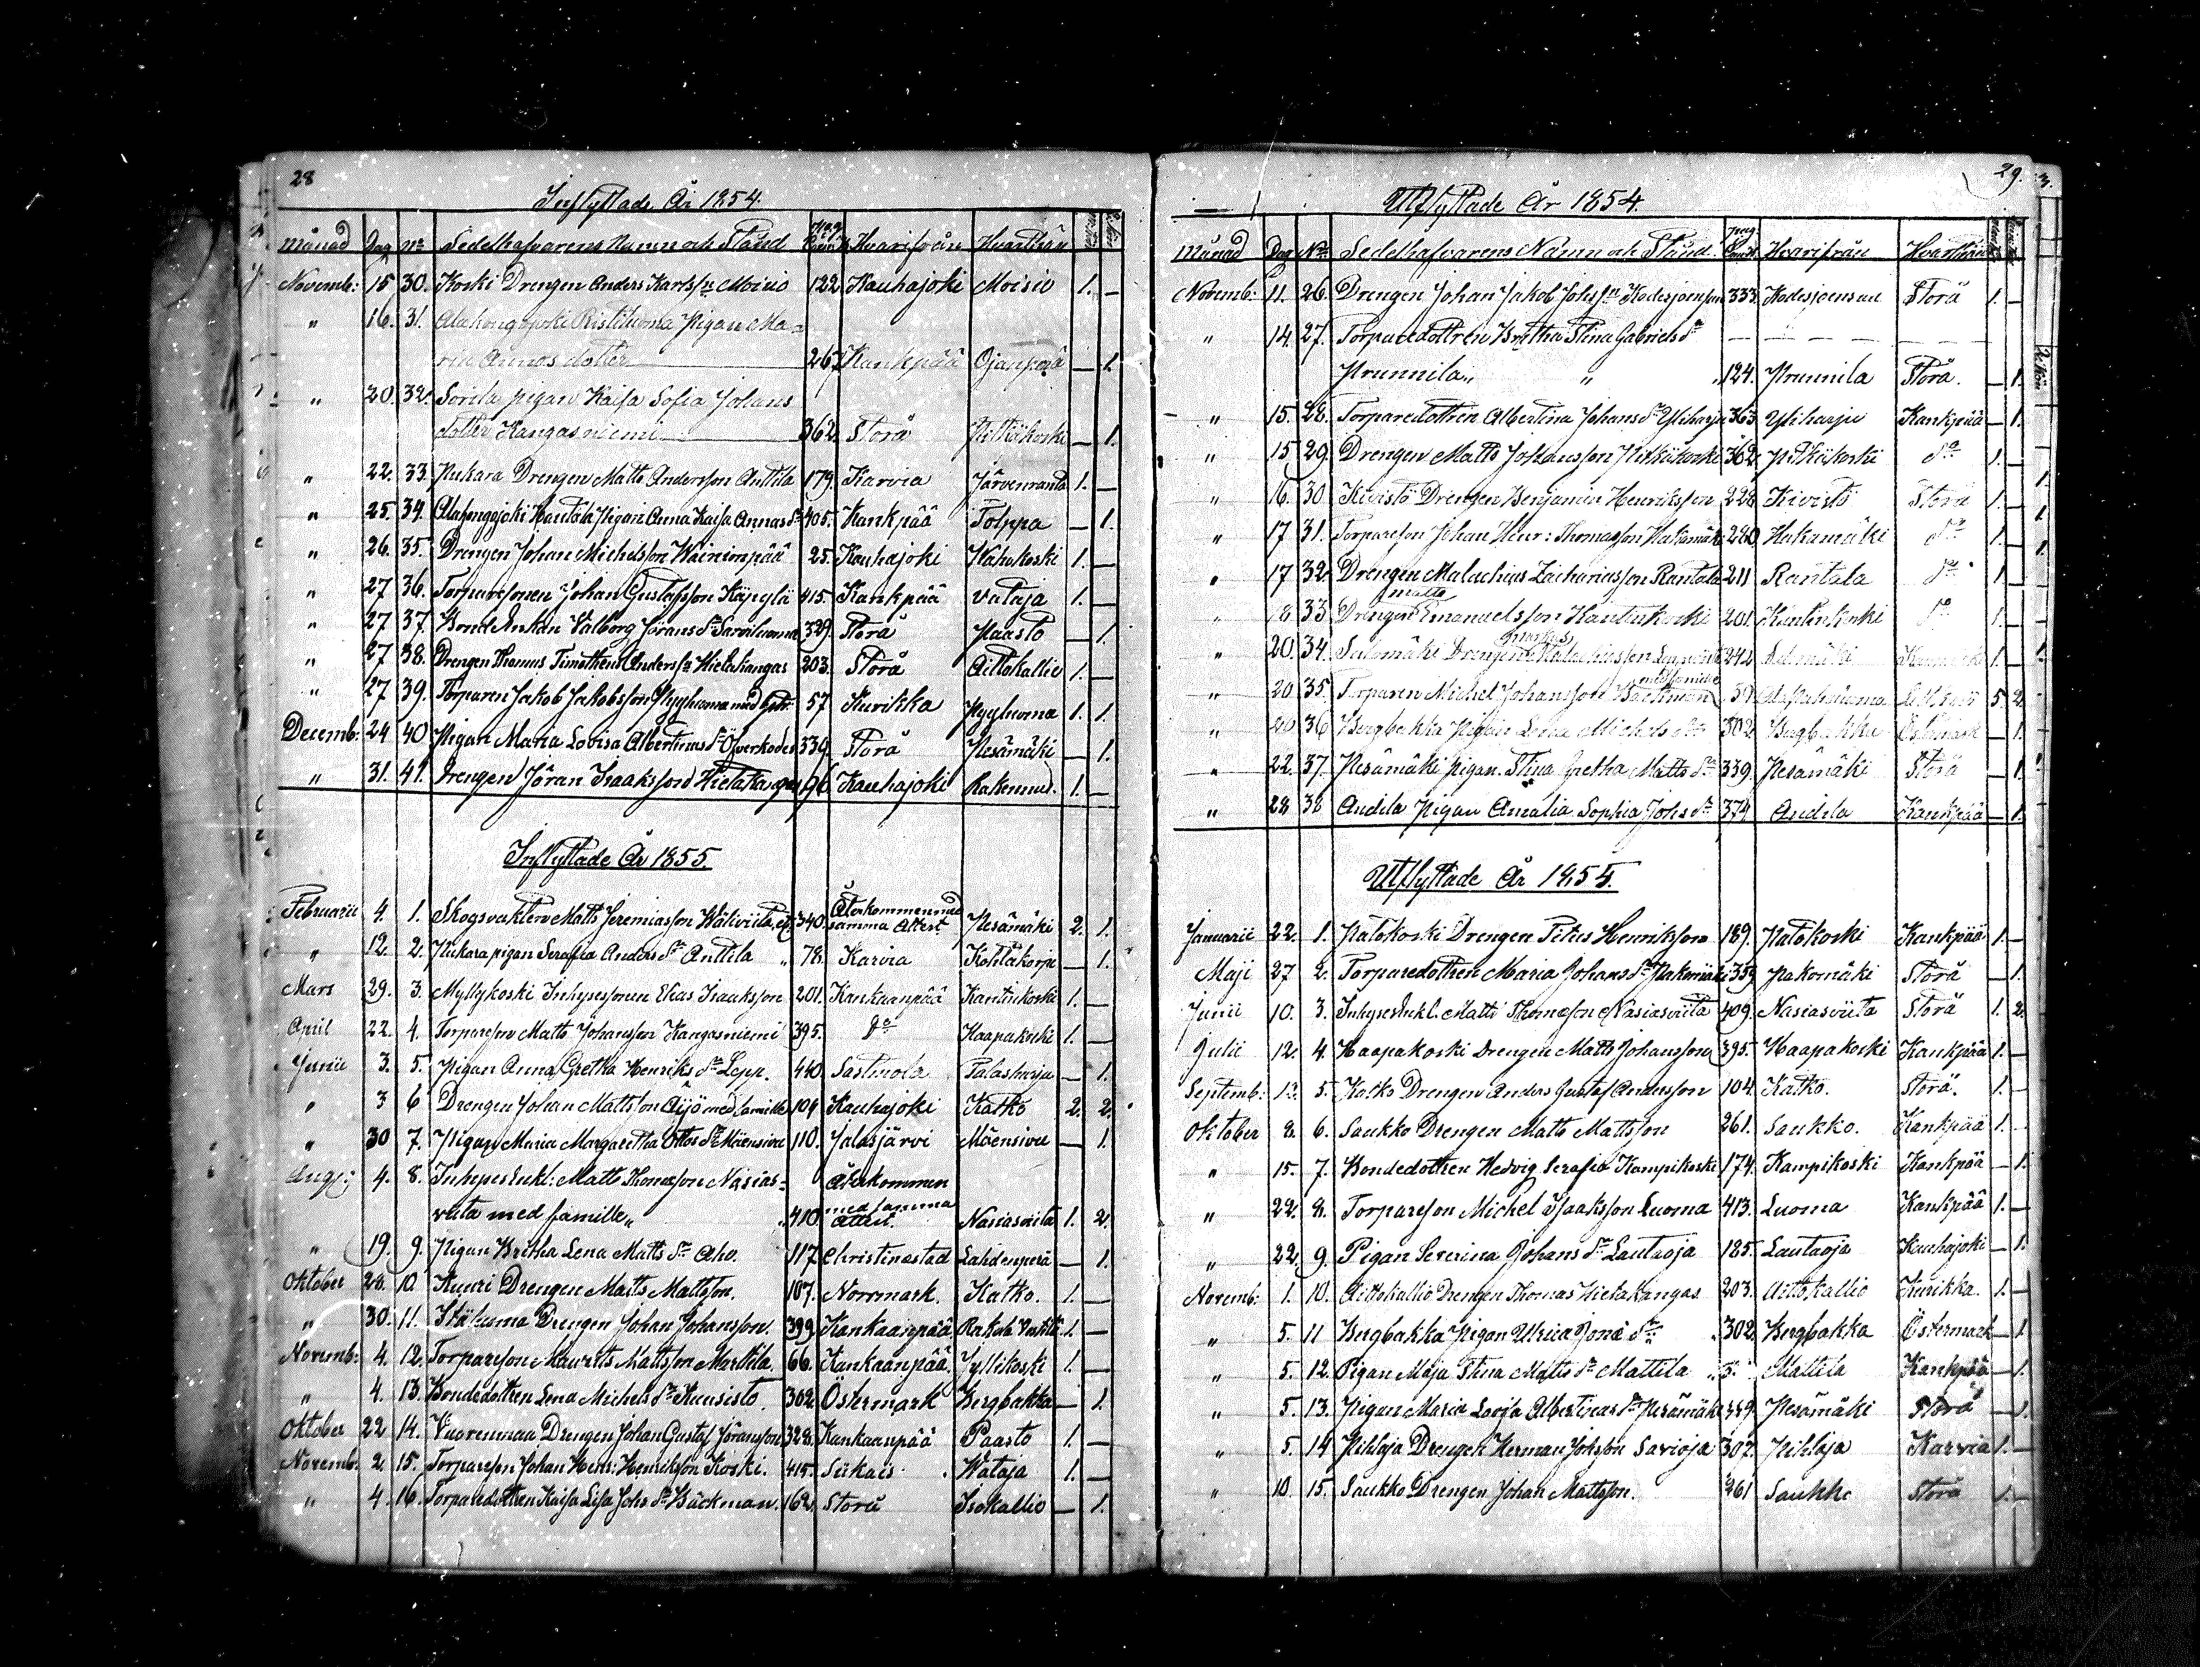 28
Inflyttade År 1854.
Månad Dag No Sedelhafvarens Namn och Stånd Hvarifrån Hvarthän
Novemb: 15 30. Koski Drengen Anders Karlss:n Moisio 122 Kauhajoki Moisio 1. —
" 16. 31. Alahongojoki Ristiluoma Pigan Ma-
ria Annos dotter 267 Kankpää Ojanperä — 1.
" 20. 32. Sorila pigan Kaisa Sofia Johans
dotter Kangasniemi 362 Storå Pitkäkoski — 1.
" 22. 33. Pukara Drengen Matts Andersson Anttila 179. Karvia Järvenranta 1. —
" 25. 34. Alahongojoki Hautola Pigan Anna Kaisa Annas dr 405. Kankpää Tolppa — 1.
" 26. 35. Drengen Johan Michelsson Wäinionpää 25. Kauhajoki Wahakoski 1. —
" 27 36. Torparesonen Johan Gustafsson Käpylä 415. Kankpää Vataja 1. —
" 27 37. Bond Enkan Valborg Jörans dr Sarviluoma 329. Storå Paasto — 1.
" 27 38. Drengen Thomas Timotheus Anderss:n Hietakangas 203. Storå Aittokallio 1. —
" 27 39. Torparen Jakob Jakobsson Pyyluoma med hstr. 57 Kurikka Pyyluoma 1. 1.
Decemb: 24 40 Pigan Maria Lovisa Albertinas dr Öfverkodes 339. Storå Pesämäki — 1.
" 31. 41. Drengen Jöran Isaaksson Hietakangas 96 Kauhajoki Rakennus. 1. —
Inflyttade År 1855.
Februarii 4. 1. Skogsvaktern Matts Jeremiasson Wäliviita, 340. Återkommen med samma Attest. Pesämäki 2. 1.
" 12. 2. Pukara pigan Serafia Anders dr Anttila " 78. Karvia Kohtakorpi — 1.
Mars 29. 3. Myllykoski Inhysessonen Elias Isaaksson 201. Kankaanpää Kantinkoski 1. —
April 22. 4. Torpareson Matts Johansson Kangasniemi 395. do Haapakoski 1. —
Junii 3. 5. Pigan Anna Gretha Henriks dr Lepp. 440. Sastmola Palasharju — 1.
" 3 6 Drengen Johan Mattsson Äijö med familie 104 Kauhajoki Katko 2. 2.
" 30 7. Pigan Maria Margaretha Ottos dr Mäensivu 110. Jalasjärvi Mäensivu — 1.
Aug: 4. 8. Inhyses Enkl: Matts Thomasson Nasias- Återkommen
viita med familie " " 410 med samma Attest. Nasiasviita 1. 2.
" 19. 9. Pigan Britha Lena Matts dr Aho. 117 Christinestad Lahdenperä — 1.
Oktober 20. 10. Kuuri Drengen Matts Mattsson. 107. Norrmark. Katko. 1. —
" 30. 11. Drengen Johan Johansson. 399 Kankaanpää 1. —
Novemb: 4. 12. Torpareson Mauritts Mattsson Marttila. 66. Kankaanpää. Jyllikoski 1. —
" 4. 13. Bondedottren Lena Michels dr Kuusisto. 302 Östermark Bergbakka — 1.
Oktober 22 14. Vuorenmaa Drengen Johan Gustaf Jöransson 328. Kankaanpää Paasto 1. —
Novemb: 2. 15. Torpareson Johan Henr: Henriksson Koski. 415. Siikais. Wataja 1. —
" 4. 16. Torparedottren Kaisa Lisa Johs dr Bäckman. 162. Storå Isokallio — 1.
29.
Utflyttade År 1854.
Månad Dag No Sedelhafvarens Namn och Stånd. Hvarifrån Hvarthän
Novemb: 11. 26. Drengen Johan Jakob Johss:n Kodesjoensuu 333. Kodesjoensuu Storå 1. —
" 14. 27. Torparedottren Britha Stina Gabriels dr
Prunnila " " 124. Prunnila Storå. — 1.
" 15. 28. Torparedottren Albertina Johans dr Yliharju 363 Yliharju Kankpää — 1.
" 15 29. Drengen Matts Johansson Pitkäkoski 362. Pitkäkoski do 1. —
" 16. 30 Kivistö Drengen Benjamin Henriksson 228 Kivistö Storå 1. —
" 17 31. Torpareson Johan Henr: Thomasson Hakamäki 280. Hakamäki do 1. —
" 17 32. Drengen Malachias Zachariasson Rantala 211 Rantala do 1 —
" 18 33 Drengen Matts Emanuelsson Kantinkoski 201. Kantinkoski do 1. —
" 20. 34. Salomäki Drengen Malachiasson 242 Salomäki 1. —
" 20 35. Torparen Michel Johansson Bäckman med familie 5 2.
" 20 36 Bergbakka Pigan Lena Michels dr 302 Bergbakka Östermark — 1.
" 22. 37. Pesämäki pigan Stina Gretha Matts dr 339. Pesämäki Storå — 1.
" 28 38 Andila Pigan Amalia Sophia Johs dr 374 Andila Kankpää — 1.
Utflyttade År 1855.
Januarii 22. 1. Patokoski Drengen Petrus Henriksson 189. Patokoski Kankpää 1. —
Maji 27 2. Torparedottren Maria Johans dr Pakomäki 359 Pakomäki Storå — 1.
Junii 10. 3. Inhyses Enkl. Matts Thomasson Nasiasviita 409. Nasiasviita Storå 1. 2.
Julii 12. 4. Haapakoski Drengen Matts Johansson 395. Haapakoski Kankpää 1. —
Septemb: 13. 5. Katko Drengen Anders Gustaf Andersson 104. Katko. Storå. 1. —
Oktober 8. 6. Saukko Drengen Matts Mattsson 261. Saukko. Kankpää 1. —
" 15. 7. Bondedottren Hedvig Serafia Kampikoski 174. Kampikoski Kankpää — 1.
" 22. 8. Torpareson Michel Isaaksson Luoma 413. Luoma Kankpää 1. —
" 22. 9. Pigan Severina Johans dr Lautaoja 185. Lautaoja Kauhajoki — 1.
Novemb: 1. 10. Aittokallio Drengen Thomas Hietakangas 203. Aittokallio Kurikka. 1. —
" 5. 11 Bergbakka Pigan Ulrica Jona dr 302. Bergbakka Östermark — 1.
" 5. 12. Pigan Maja Stina Matts dr Mattila 5. Mattila Kankpää — 1.
" 5. 13. Pigan Maria Lovisa Albertinas dr Pesämäki 339. Pesämäki Storå — 1.
" 5. 14 Pihlaja Drengen Herman Johsson Savioja 307. Pihlaja Karvia 1. —
" 10. 15. Saukko Drengen Johan Mattsson. 261 Saukko Storå 1. —